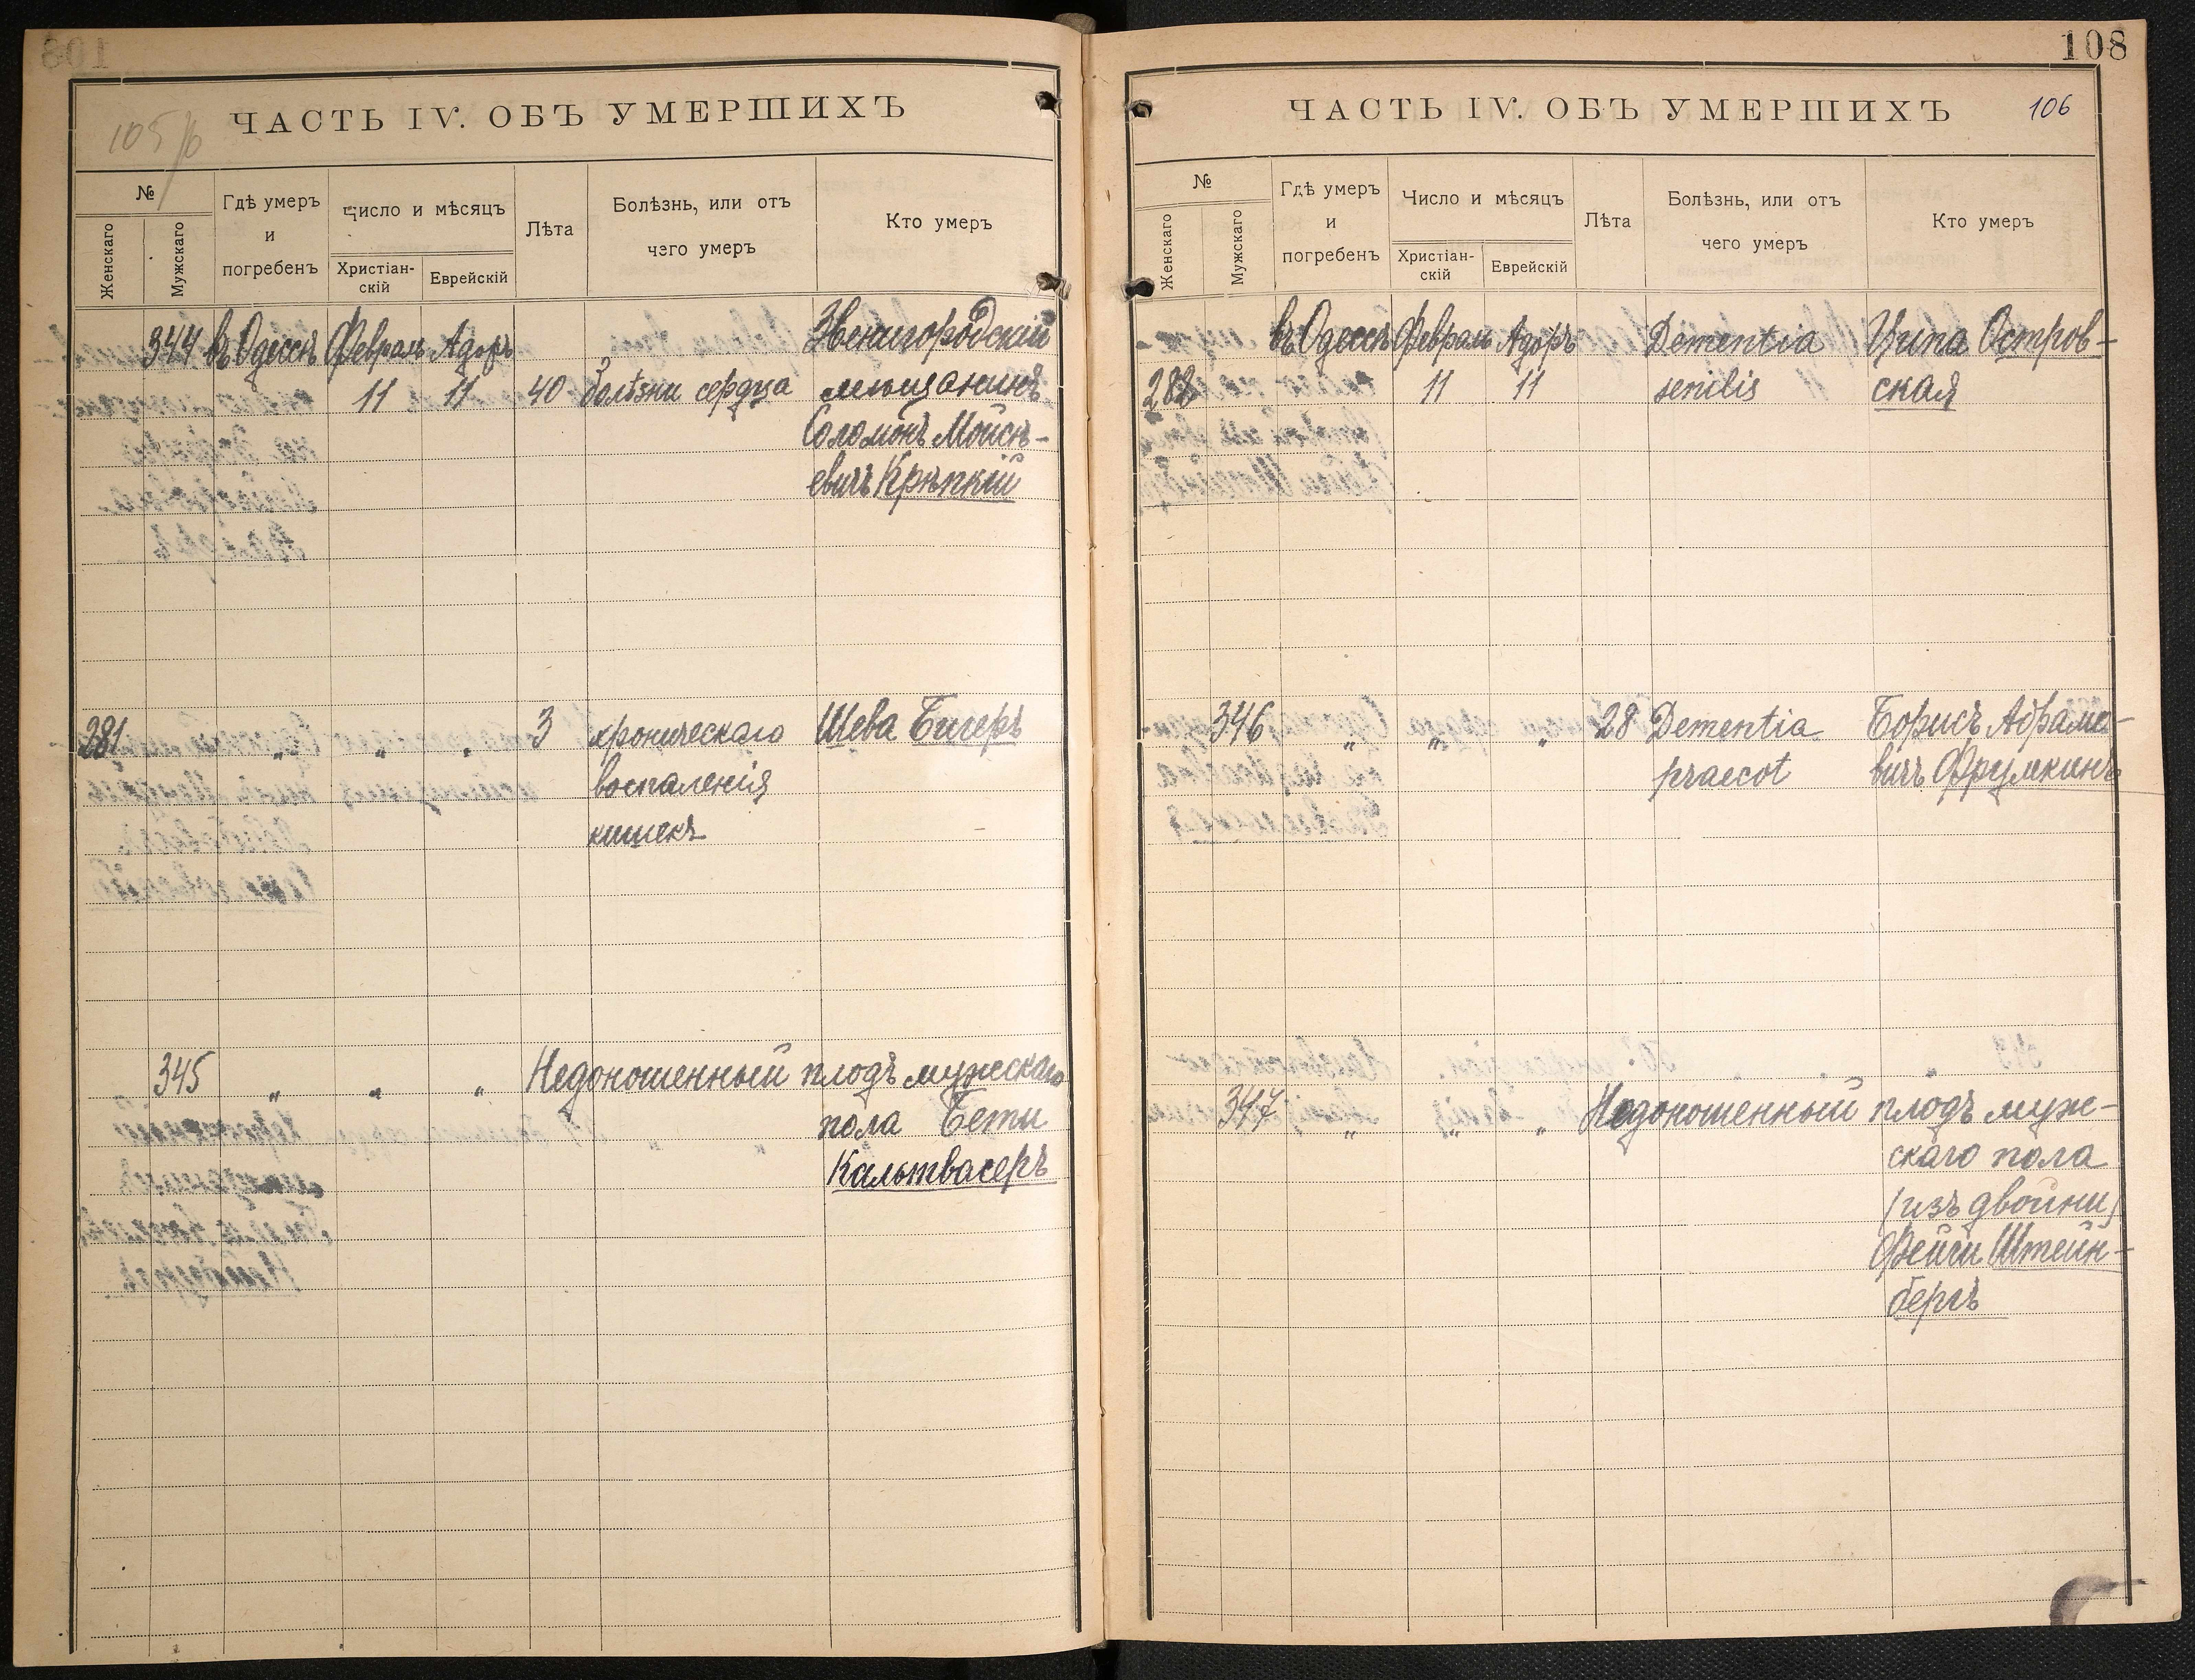 105/б
ЧАСТЬ IV. ОБЪ УМЕРШИХЪ
№
Женскаго
Мужскаго
Гдѣ умеръ
и
погребенъ
Число и мѣсяцъ
Христіан-
скій
Еврейскій
Лѣта
Болѣзнь, или отъ
чего умеръ
Кто умеръ
344 въ Одессѣ Февраль Адоръ Звенигородскій
11 11 40 болѣзни сердца мѣщанинъ
Соломонъ Мойсѣ-
евичъ Крѣпкій
281 „ „ „ 3 хроническаго Шева Бигеръ
воспаленія
кишекъ
345 „ „ „ Недоношенный плодъ мужскаго
пола Бети
Кальтвасеръ
108
ЧАСТЬ IV. ОБЪ УМЕРШИХЪ 106
№
Женскаго
Мужскаго
Гдѣ умеръ
и
погребенъ
Число и мѣсяцъ
Христіан-
скій
Еврейскій
Лѣта
Болѣзнь, или отъ
чего умеръ
Кто умеръ
въ Одессѣ Февраль Адоръ Dementia Ципа Остров-
282 11 11 senilis ская
346 „ „ „ 28 Dementia Борисъ Абрамо-
praecot вичъ Фрумкинъ
347 „ „ „ Недоношенный плодъ муж-
скаго пола
(изъ двойни)
Фейги Штейн-
бергъ